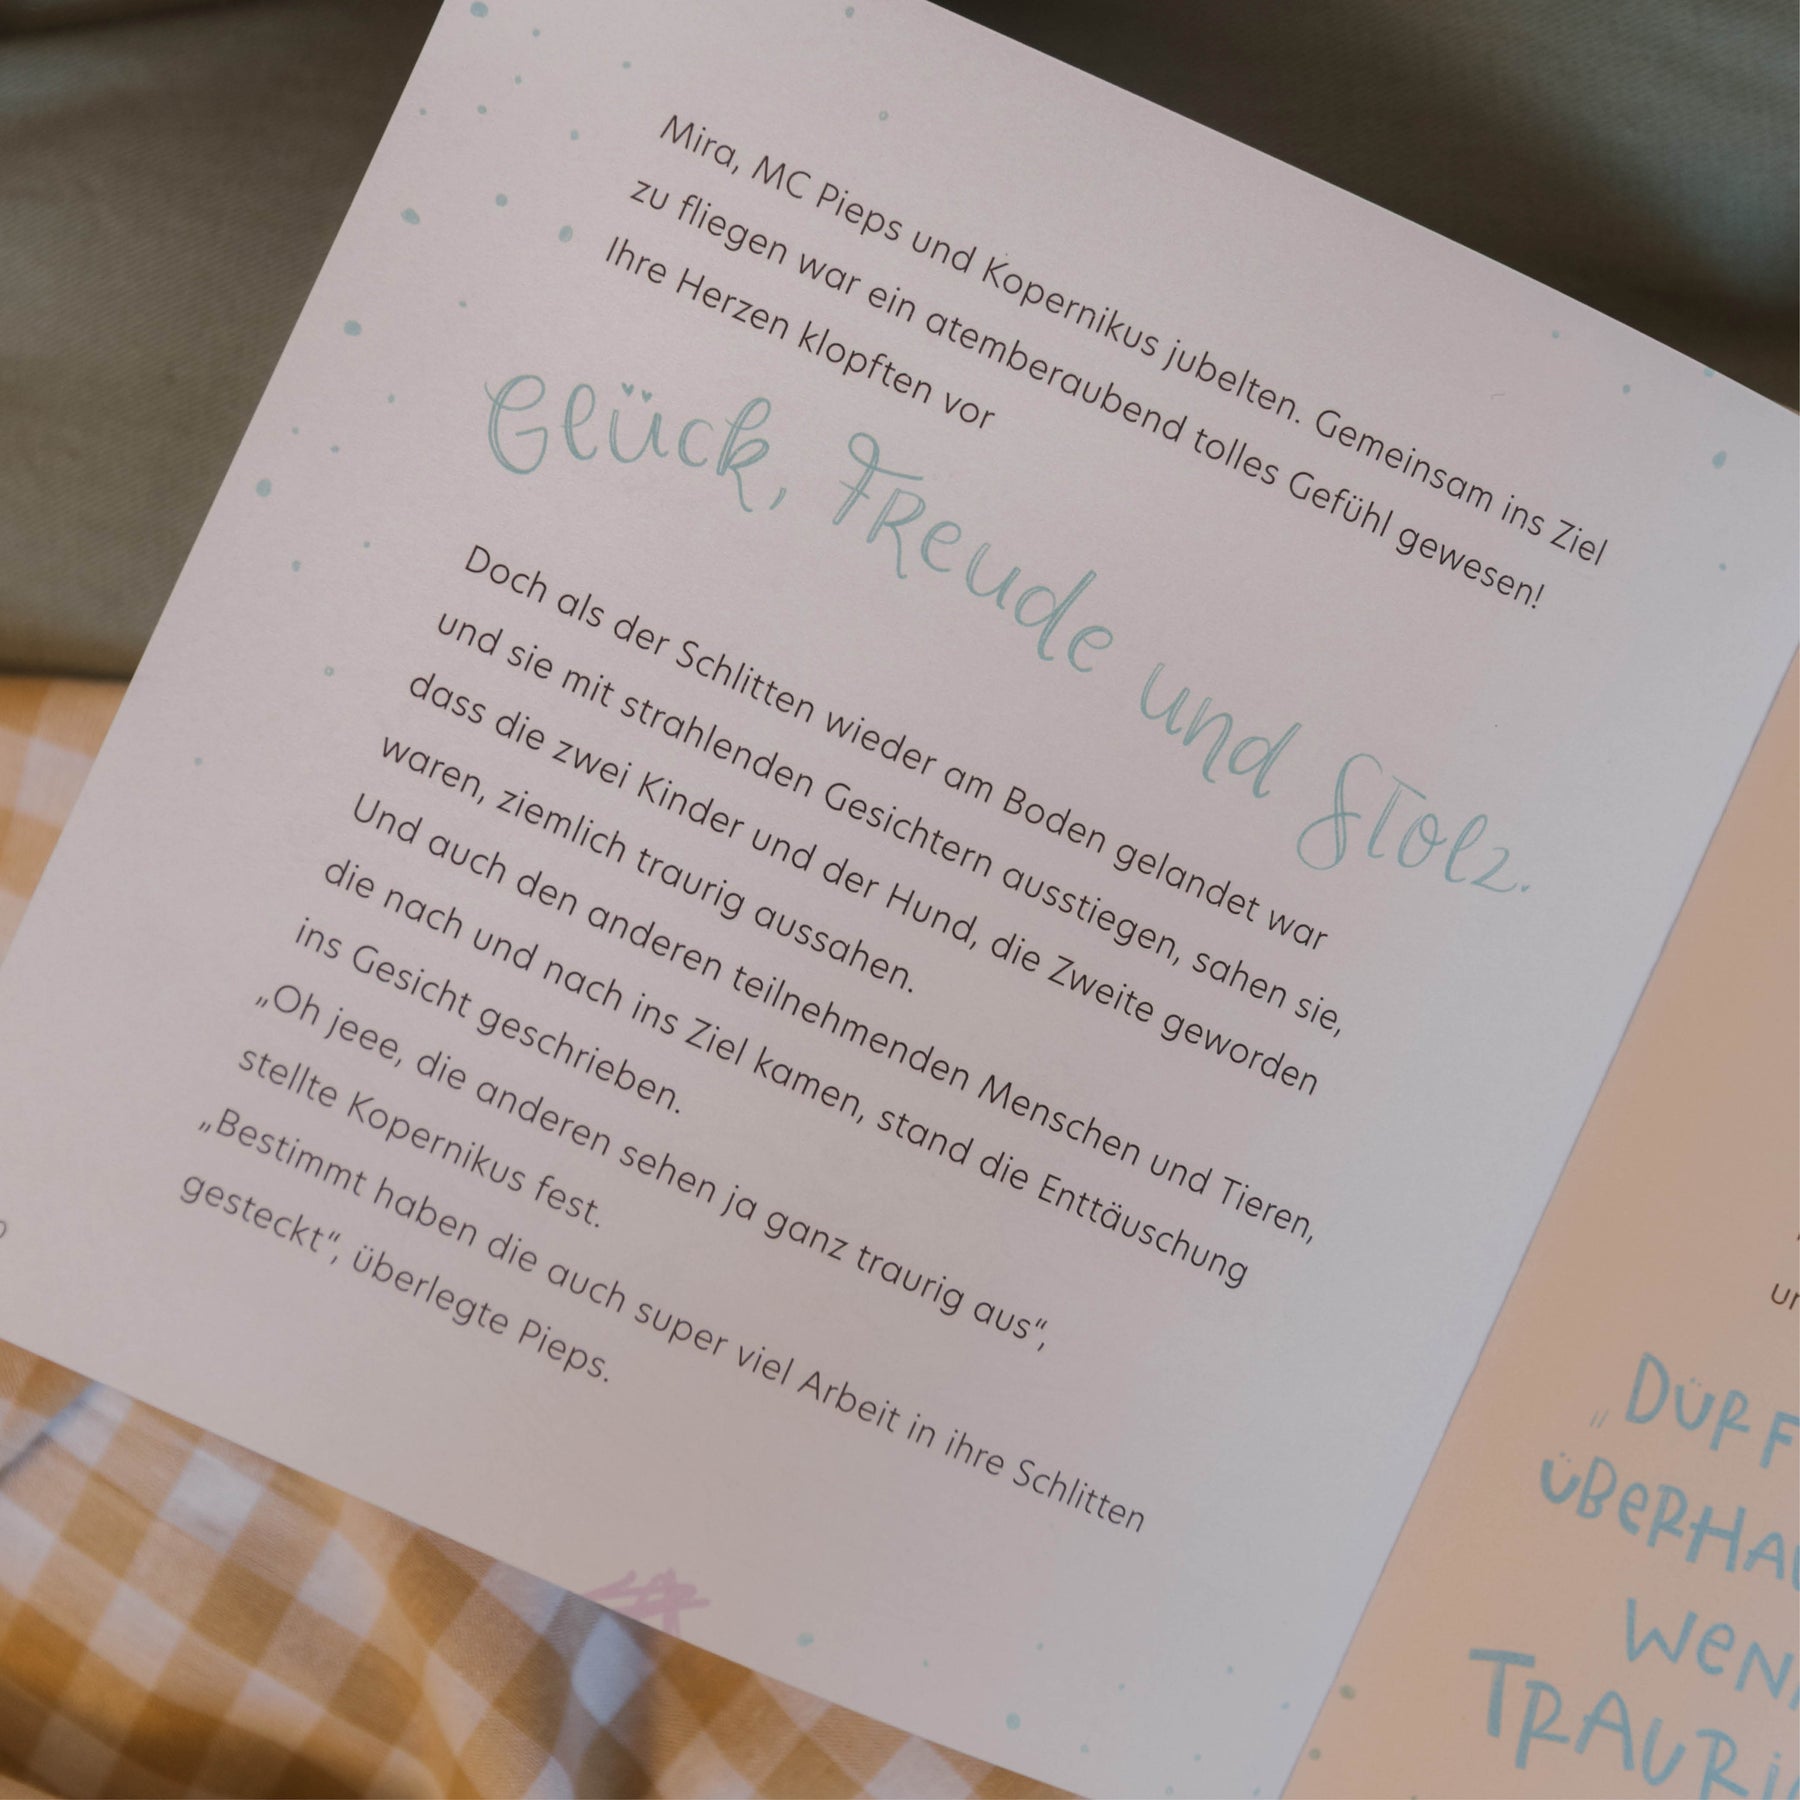 Mira, MC Pieps und Kopernikus jubelten. Gemeinsam ins Ziel
zu fliegen war ein atemberaubend tolles Gefühl gewesen!
Ihre Herzen klopften vor
Glück, Freude und Stolz.
Doch als der Schlitten wieder am Boden gelandet war
und sie mit strahlenden Gesichtern ausstiegen, sahen sie,
dass die zwei Kinder und der Hund, die Zweite geworden
waren, ziemlich traurig aussahen.
Und auch den anderen teilnehmenden Menschen und Tieren,
die nach und nach ins Ziel kamen, stand die Enttäuschung
ins Gesicht geschrieben.
„Oh jeee, die anderen sehen ja ganz traurig aus“,
stellte Kopernikus fest.
„Bestimmt haben die auch super viel Arbeit in ihre Schlitten
gesteckt“, überlegte Pieps.